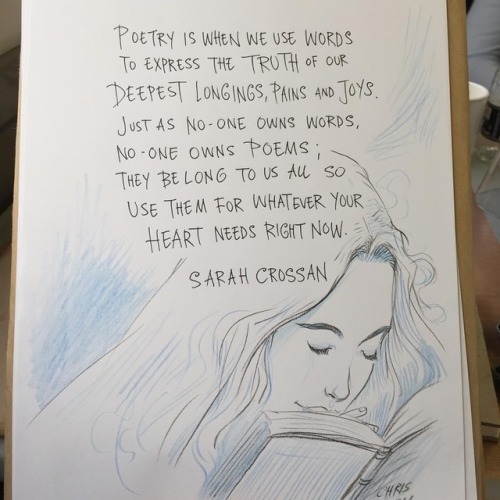 POETRY IS WHEN WE USE WORDS
TO EXPRESS THE TRUTH OF OUR
DEEPEST LONGINGS, PAINS AND JOYS.
JUST AS NO-ONE OWNS WORDS,
NO-ONE OWNS POEMS;
THEY BELONG TO US ALL SO
USE THEM FOR WHATEVER YOUR
HEART NEEDS RIGHT NOW.
SARAH CROSSAN
CHRIS